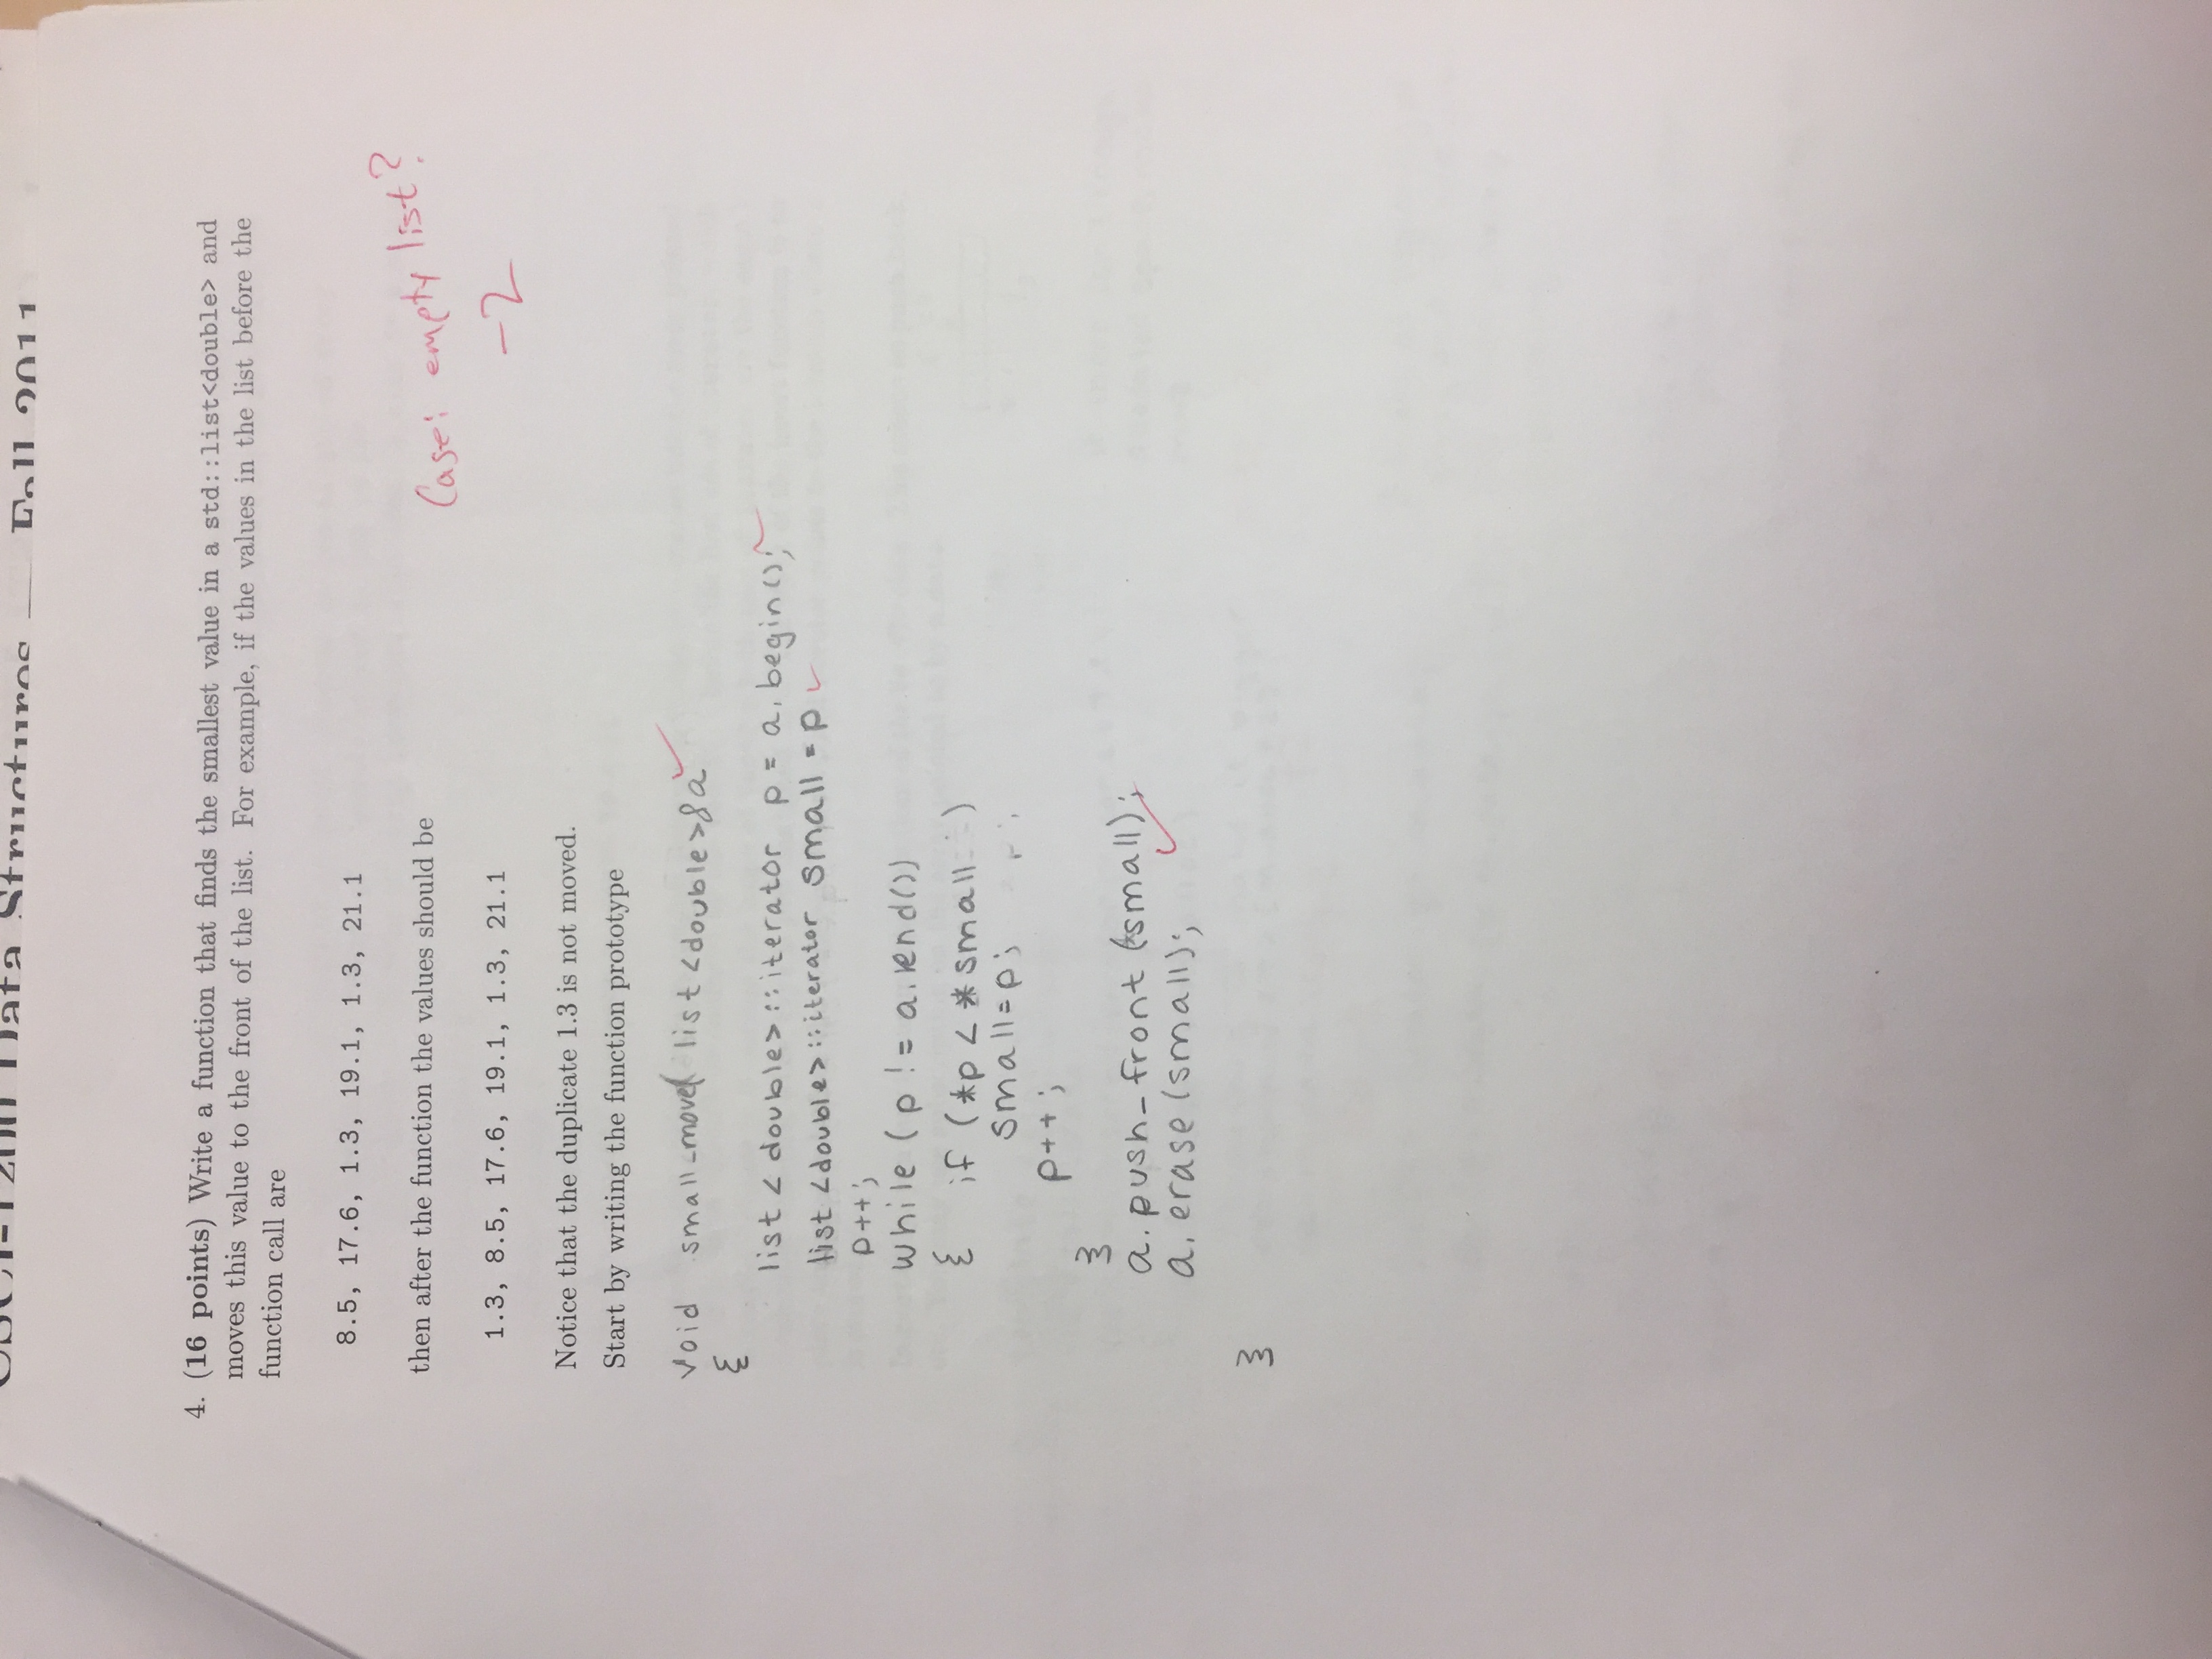 CSCI-1200 Data Structures — Fall 2011
4. (16 points) Write a function that finds the smallest value in a std::list<double> and
moves this value to the front of the list. For example, if the values in the list before the
function call are
8.5, 17.6, 1.3, 19.1, 1.3, 21.1
then after the function the values should be
Case: empty list?
-2
1.3, 8.5, 17.6, 19.1, 1.3, 21.1
Notice that the duplicate 1.3 is not moved.
Start by writing the function prototype
void small_move( list <double>&a
{
list < double>::iterator p = a.begin();
list <double>::iterator small = p
p++;
while ( p != a.end())
{ if (*p < *small )
small=p;
p++;
}
a.push_front (*small);
a.erase (small);
}